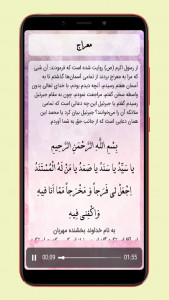 معراج
از رسول اکرم (ص) روایت شده است که فرمودند: آن شبی
که مرا به معراج بردند از تمامی آسمان‌ها گذشتم تا به
آسمان هفتم رسیدم. آنچه دیدم بودم، با خدای تعالی بدون
رسیدم گفتم یا جبرئیل این چه دعائی است که تمامی
ملائکه آن را می‌خوانند؟ جبرئیل بیان کرد یا محمد این
همان دعایی است که از جانب حق به شما آوردم
بِسْمِ اللَّهِ الرَّحْمَنِ الرَّحِيمِ
يا سَيِّدُ يا سَنَدُ يا صَمَدُ يا مَنْ لَهُ الْمُسْتَنَدُ
اجْعَلْ لِي فَرَجاً وَ مَخْرَجاً مِمَّا أَنَا فِيهِ
وَاكْفِنِي فِيهِ
به نام خداوند بخشنده مهربان
00:09
01:55